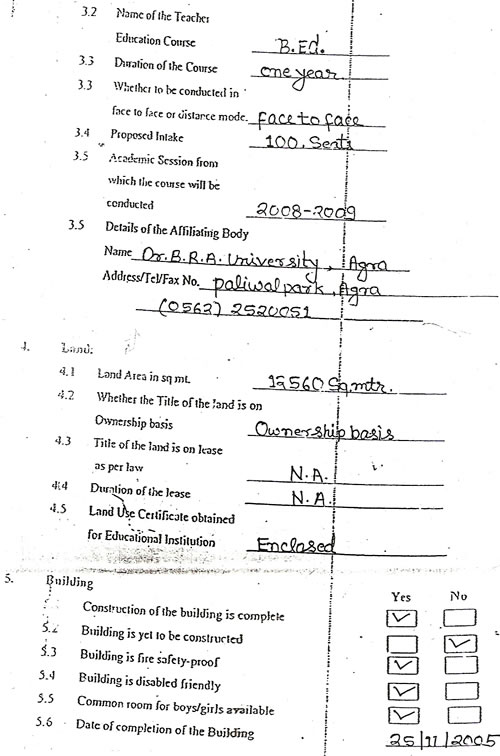 3.2 Name of the Teacher
Education Course B.Ed.
3.3 Duration of the Course one year
3.3 Whether to be conducted in
face to face or distance mode. face to face
3.4 Proposed Intake 100. Seats
3.5 Academic Session from
which the course will be
conducted 2008-2009
3.5 Details of the Affiliating Body
Name Dr. B.R.A. University, Agra
Address/Tel/Fax No. paliwal park, Agra
(0562) 2520051
4. Land:
4.1 Land Area in sq mt. 12560 Sq.mtr.
4.2 Whether the Title of the land is on
Ownership basis Ownership basis
4.3 Title of the land is on lease
as per law N.A.
4.4 Duration of the lease N.A.
4.5 Land Use Certificate obtained
for Educational Institution Enclosed
5. Building Yes No
Construction of the building is complete
5.2 Building is yet to be constructed
5.3 Building is fire safety-proof
5.4 Building is disabled friendly
5.5 Common room for boys/girls available
5.6 Date of completion of the Building 25/11/2005